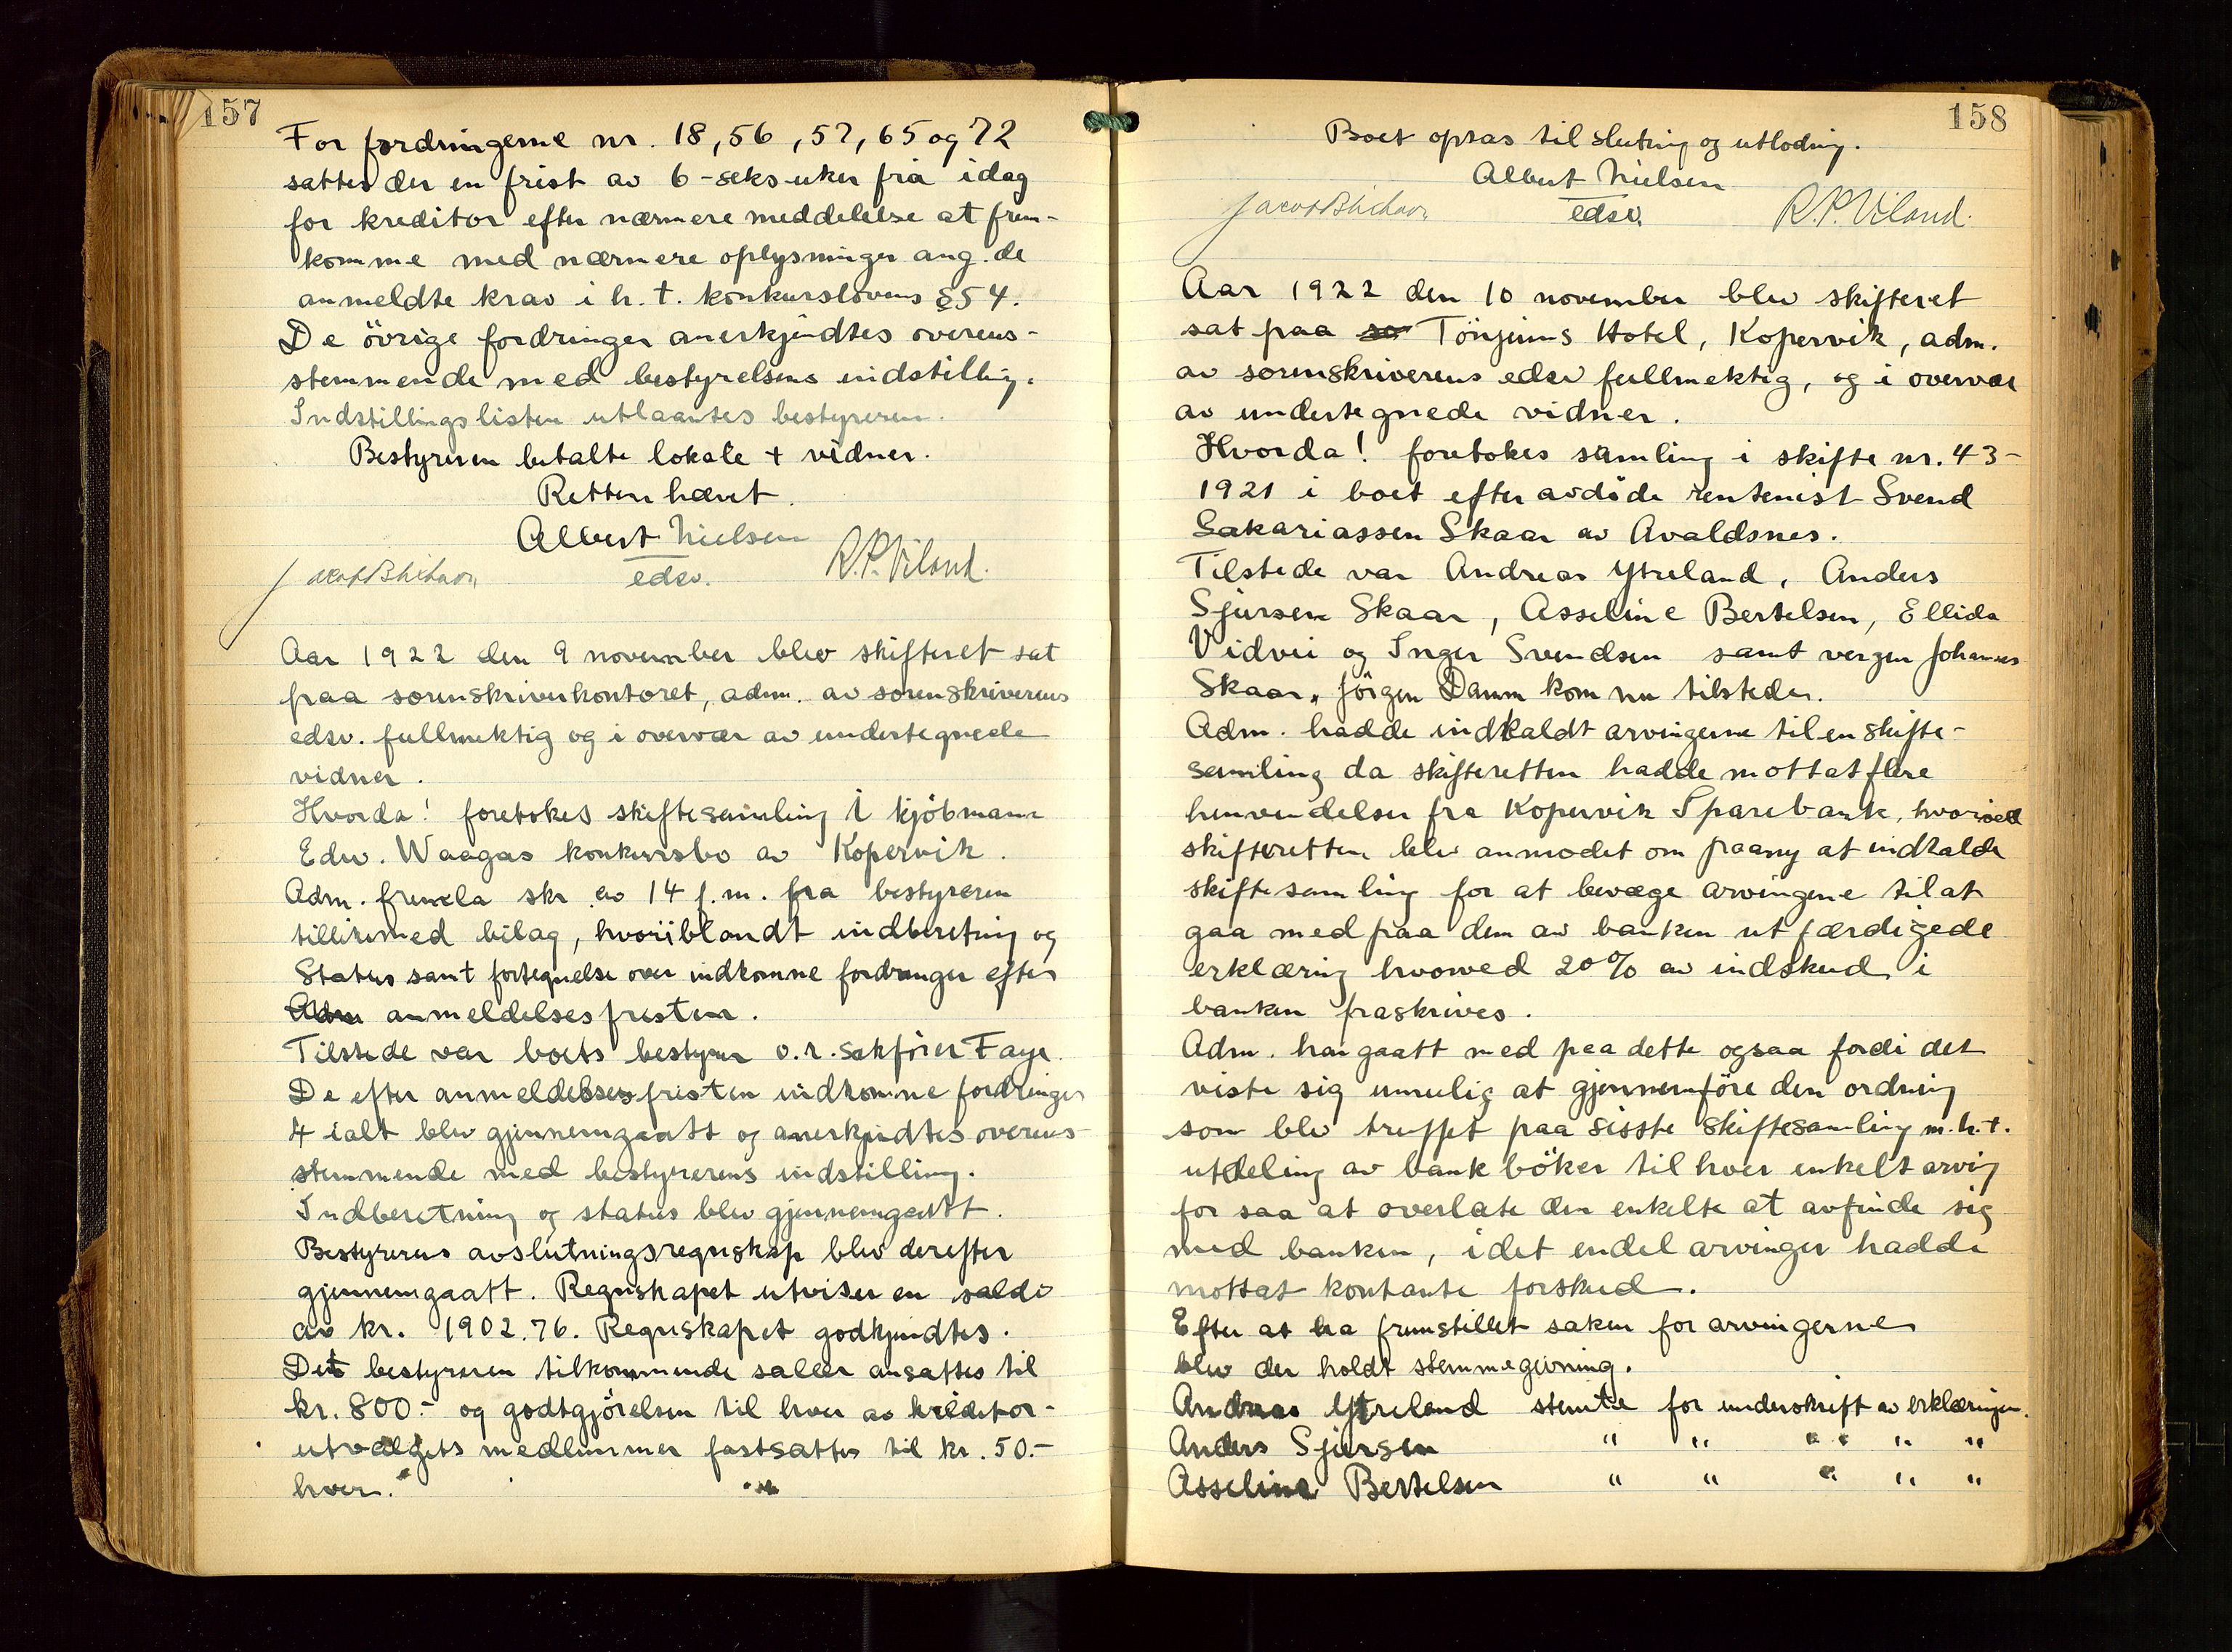 157
For fordringerne nr. 18, 56, 57, 65 og 72
sattes der en frist av 6-seks-uker fra idag
for kreditor efter nærmere meddelelse at frem-
komme med nærmere oplysninger ang. de
anmeldte krav i h. t. konkurslovens § 54.
De övrige fordringer anerkjendtes overens-
stemmende med bestyrelsens indstilling.
Indstillingslisten utlaantes bestyreren.
Bestyreren betalte lokale + vidner.
Retten hævet.
Albert Nielsen
edsv.
R.P. Viland.
Aar 1922 den 9 november blev skifteret sat
paa sorenskriverkontoret, adm. av sorenskriverens
edsv. fullmektig og i overvær av undertegnede
vidner.
Hvorda! foretokes skiftesamling i kjöbmann
Edv. Waagas konkursbo av Kopervik.
Adm. fremla skr. av 14 f.m. fra bestyreren
tillikemed bilag, hvoriiblandt indberetning og
Status samt fortegnelse over indkomne fordringer efter
Adm anmeldelsesfristen.
Tilstede var boets bestyrer o.r. sakförer Faye.
De efter anmeldelsesfristen indkomne fordringer
4 ialt blev gjennemgaatt og anerkjendtes overens-
stemmende med bestyrerens indstilling.
Indberetning og status blev gjennemgaatt.
Bestyrerens avslutningsregnskap blev derefter
gjennemgaatt. Regnskapet utviser en saldo
av kr. 1902.76. Regnskapet godkjendtes.
Det bestyreren tilkommende salær ansattes til
kr. 800.- og godtgjörelsen til hver av kreditor-
utvalgets medlemmer fastsattes til kr. 50.-
hver.
158
Boet optas til slutning og utlodning.
Albert Nielsen
edsv.
R.P. Viland.
Aar 1922 den 10 november blev skifteret
sat paa so Tönjums Hotel, Kopervik, adm.
av sorenskriverens edsv fullmektig, og i overvær
av undertegnede vidner.
Hvorda! foretokes samling i skifte nr. 43-
1921 i boet efter avdöde rentenist Svend
Sakariassen Skaar av Avaldsnes.
Tilstede var Andreas Ytreland, Anders
Sjursen Skaar, Asseline Bertelsen, Ellida
Vidvei og Inger Svendsen samt vergen Johannes
Skaar. Jörgen Damm kom nu tilstede.
Adm. hadde indkaldt arvingerne til en skifte-
samling da skifteretten hadde mottat flere
henvendelser fra Kopervik Sparebank, hvorved
skifteretten blev anmodet om paany at indkalde
skiftesamling for at bevæge arvingene til at
gaa med paa den av banken utfærdigede
erklæring hvorved 20% av indskud i
banken fraskrives.
Adm. har gaatt med paa dette ogsaa fordi det
viste sig umulig at gjennemföre den ordning
som blev truffet paa sisste skiftesamling m.h.t.
utdeling av bankböker til hver enkelt arving
for saa at overlate den enkelte at avfinde sig
med banken, idet endel arvinger hadde
mottat kontante forskud.
Efter at ha fremstillet saken for arvingerne
blev der holdt stemmegivning.
Andreas Ytreland stemte for underskrift av erklæringen.
Anders Sjursen " " " " "
Asseline Bertelsen " " " " "